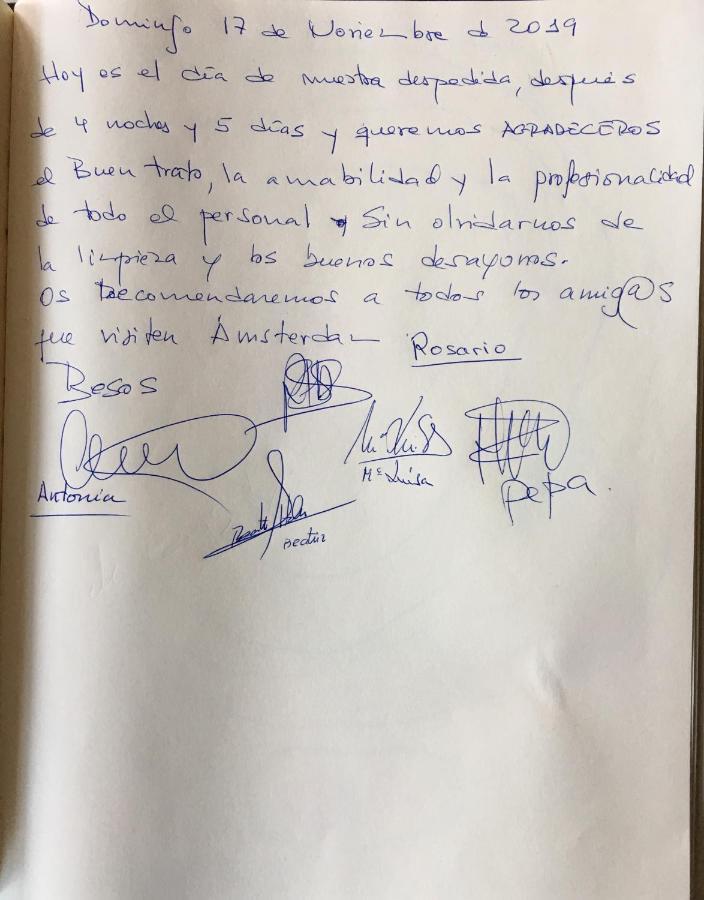 Domingo 17 de Noviembre d 2019
Hoy es el día de nuestra despedida, después
de 4 noches y 5 días y queremos AGRADECEROS
el Buen trato, la amabilidad y la profesionalidad
de todo el personal y Sin olvidarnos de
la limpieza y los buenos desayunos.
Os recomendaremos a todos los amig@s
que visiten Ámsterdam
Rosario
Besos
Antonia
Mª Luisa
Pepa.
Beatriz